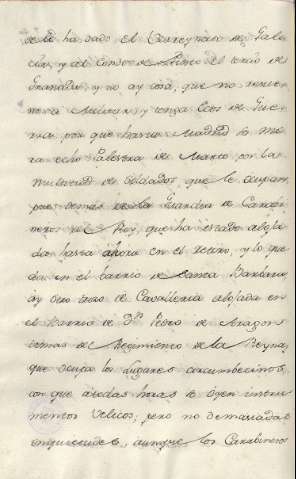 se le ha dado el Vareynato de Gale
cia, y al Conde de el tercio de
Granada, y no ay cosa, que no
Militar, y tenga ecos de Gue
rra, por que hasta Madrid se mi
ra hecho Palestra de Marte, por la
multitud de soldados, que le ocupan,
pues demas de la Guardia de Carabi
neros de el Rey, que ha estado aloja
da hasta ahora en el Retiro, y lo que
da en el barrio de Santa Barbara,
ay otro trozo de Cavalleria alojada en
el Barrio de Dn. Pedro de Aragon
demas del Regimiento de la Reyna,
que ocupa los lugares circumbecinos,
con que a todas horas se oyen instru
mentos Velicos; pero no demasiadas
inquietudes, aunque los Carabineros